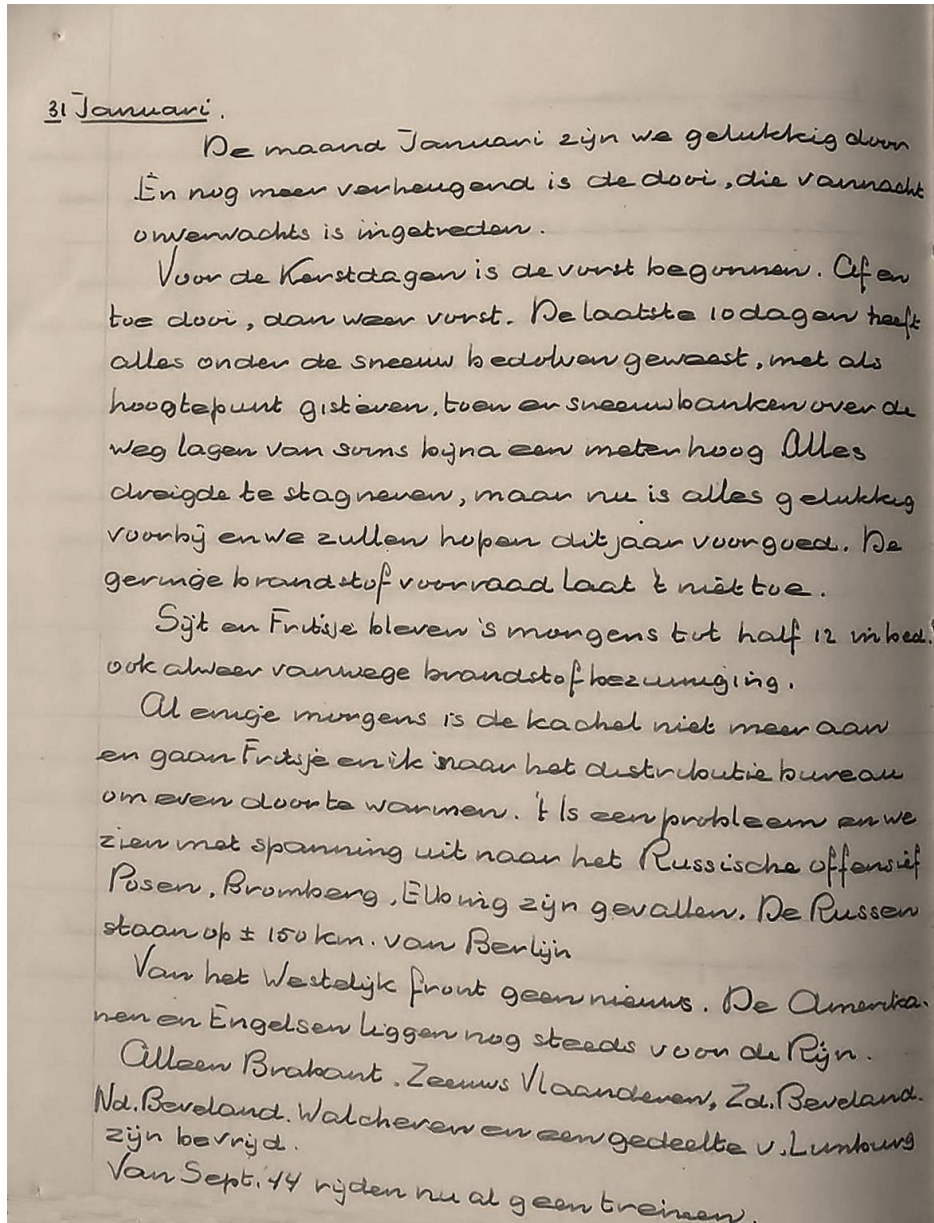 31 Januari.
De maand Januari zijn we gelukkig door
En nog meer verheugend is de dooi, die vannacht
onverwachts is ingetreden.
Voor de Kerstdagen is de vorst begonnen. Af en
toe dooi, dan weer vorst. De laatste 10 dagen heeft
alles onder de sneeuw bedolven geweest, met als
hoogtepunt gisteren, toen er sneeuwbanken over de
weg lagen van soms bijna een meter hoog Alles
dreigde te stagneren, maar nu is alles gelukkig
voorbij en we zullen hopen dit jaar voorgoed. De
geringe brandstof voorraad laat 't niet toe.
Sijt en Fritsje bleven 's morgens tot half 12 in bed.
ook alweer vanwege brandstofbezuiniging.
Al enige morgens is de kachel niet meer aan
en gaan Fritsje en ik naar het distributie bureau
om even door te warmen. 't Is een probleem en we
zien met spanning uit naar het Russische offensief
Posen, Bromberg, Elbing zijn gevallen. De Russen
staan op ± 150 km. van Berlijn
Van het Westelijk front geen nieuws. De Amerika-
nen en Engelsen liggen nog steeds voor de Rijn.
Alleen Brabant. Zeeuws Vlaanderen, Zd. Beveland.
Nd. Beveland. Walcheren en een gedeelte v. Limburg
zijn bevrijd.
Van Sept. '44 rijden nu al geen treinen.